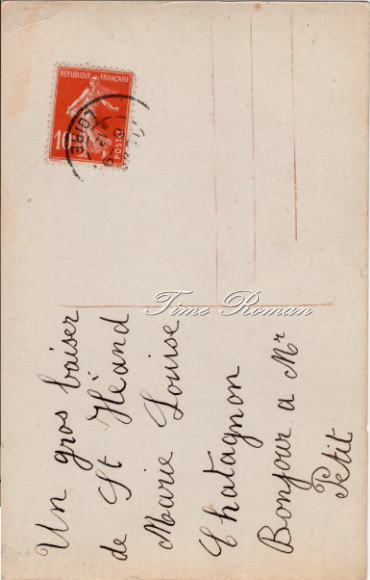 REPUBLIQUE FRANÇAISE
10c POSTES
LOIRE
Time Roman
Un gros baiser
de St Héand
Marie Louise
Chatagnon
Bonjour a Mr
Petit